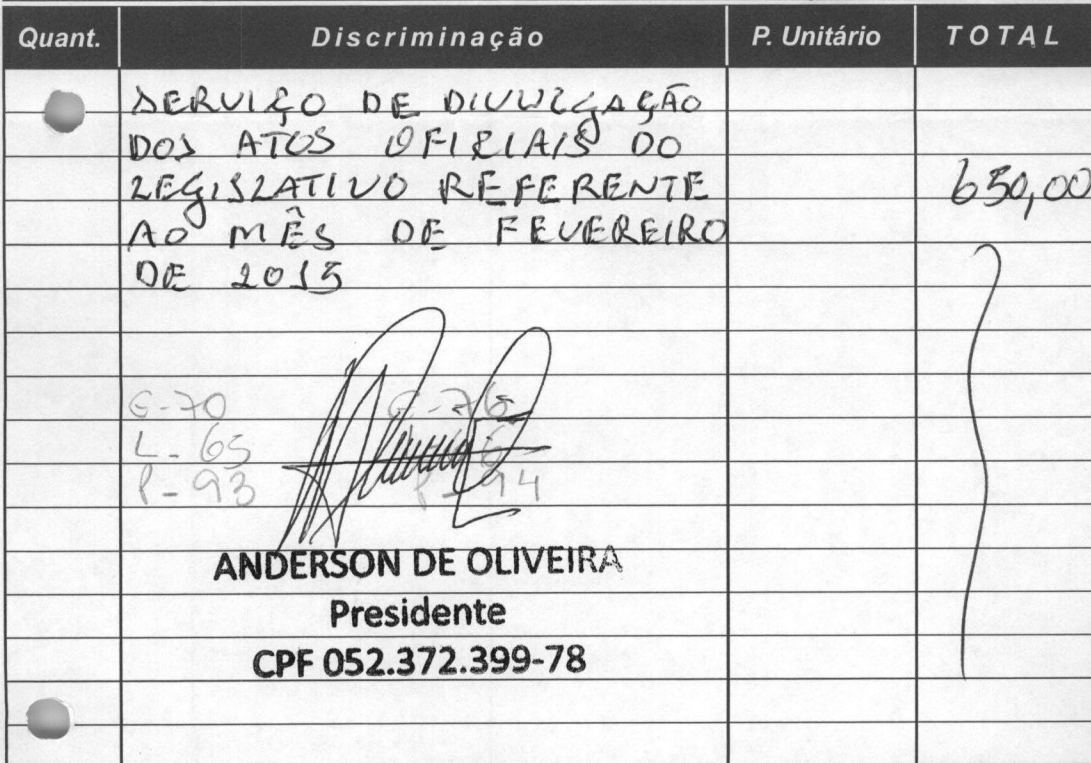 Quant. Discriminação P. Unitário TOTAL
SERVIÇO DE DIVULGAÇÃO
DOS ATOS OFICIAIS DO
LEGISLATIVO REFERENTE 650,00
AO MÊS DE FEVEREIRO
DE 2015
C-70 C-76
L-65
P-93 P-94
ANDERSON DE OLIVEIRA
Presidente
CPF 052.372.399-78